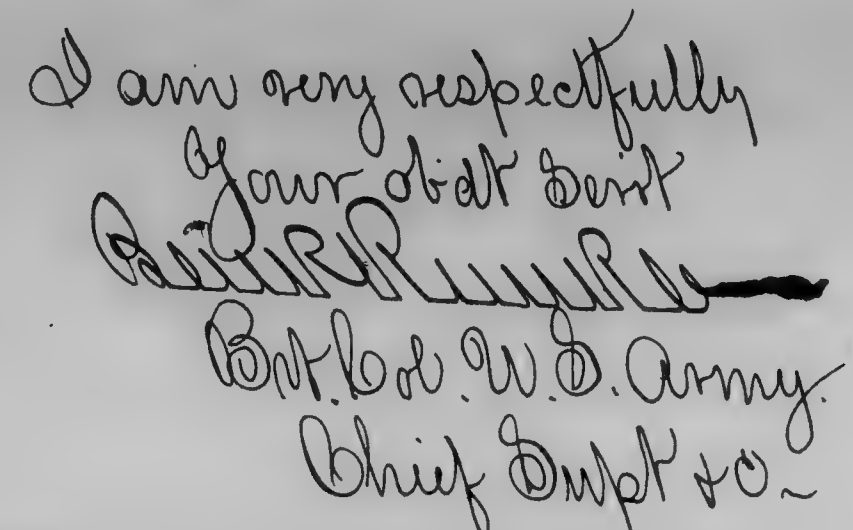 I am very respectfully
Your obdt Servt
Ben P Runkle
Bvt. Col. U. S. Army.
Chief Supt &c